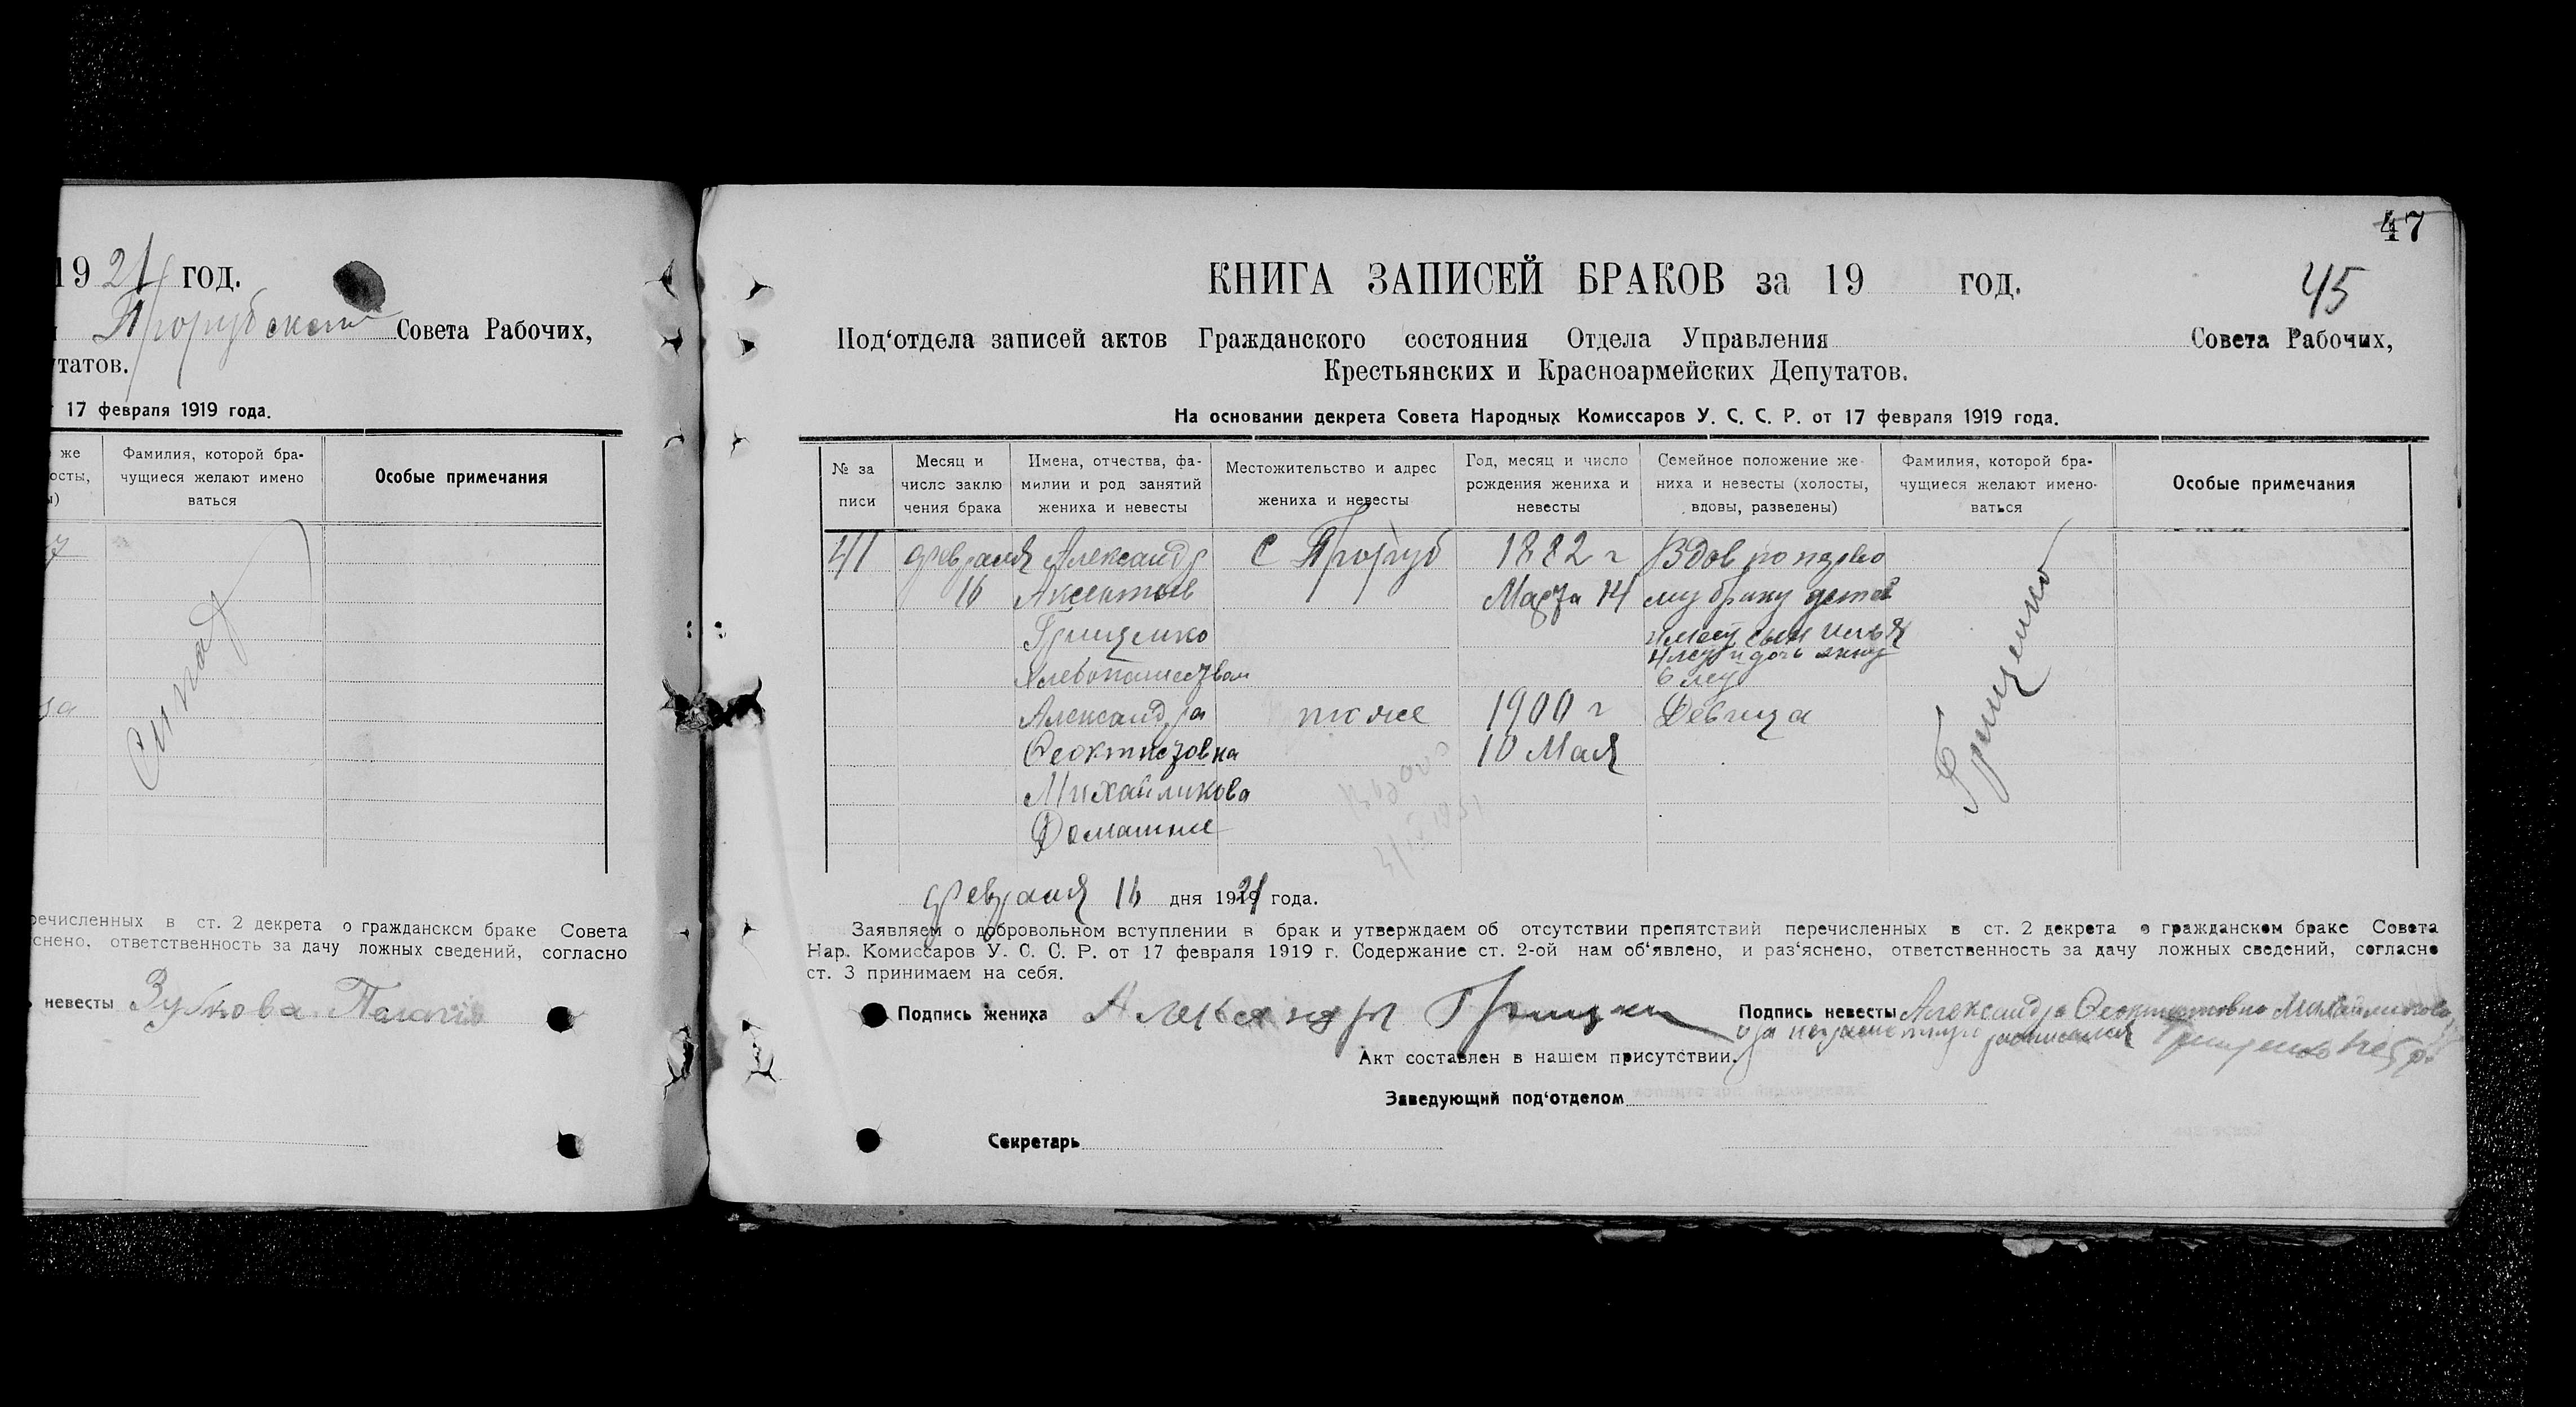 1921 год.
Прорубского Совета Рабочих,
утатов.
17 февраля 1919 года.
же
ости,
Фамилия, которой бра-
чущиеся желают имено
ваться
Особые примечания
речисленных в ст. 2 декрета о гражданском браке Совета
снено, ответственность за дачу ложных сведений, согласно
невесты Зубкова
47
45
КНИГА ЗАПИСЕЙ БРАКОВ за 19 год.
Под‘отдела записей актов Гражданского состояния Отдела Управления Совета Рабочих,
Крестьянских и Красноармейских Депутатов.
На основании декрета Совета Народных Комиссаров У. С. С. Р. от 17 февраля 1919 года.
№ за
писи
Месяц и
число заклю
чения брака
Имена, отчества, фа-
милии и род занятий
жениха и невесты
Местожительство и адрес
жениха и невесты
Год, месяц и число
рождения жениха и
невесты
Семейное положение же-
ниха и невесты (холосты,
вдовы, разведены)
Фамилия, которой бра-
чущиеся желают имено-
ваться
Особые примечания
41 февраля Александр С Проруб 1882 г Вдов по перво
16 Аксентьев Марта 14 му браку детей
Грищенко имеет сын Илья
Хлебопашеством 4 лет и дочь Анну
6 лет
Александра тоже 1900 г Девица
Феоктистовна 10 Мая
Михайликова
Домашние
Грищенко
февраля 16 дня 1921 года.
Заявляем о добровольном вступлении в брак и утверждаем об отсутствии препятствий перечисленных в ст. 2 декрета о гражданском браке Совета
Нар. Комиссаров У. С. С. Р. от 17 февраля 1919 г. Содержание ст. 2-ой нам об‘явлено, и раз‘яснено, ответственность за дачу ложных сведений, согласно
ст. 3 принимаем на себя.
Подпись жениха Александр Грищен
Подпись невесты Александра Феоктистовна Михайликова,
а за неграмотную расписался Грищенко
Акт составлен в нашем присутствии.
Заведующий под‘отделом
Секретарь